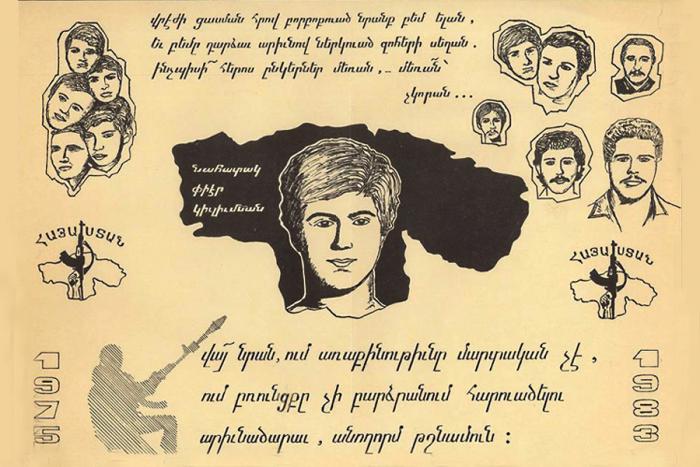 վրէժի ցասման հրով բորբոքուած նրանք բեմ ելան,
եւ բեմը դարձաւ արիւնով ներկուած զոհերի սեղան.
ինչպիսի՜ հերոս ընկերներ մեռան, .. մեռան՝
չկորան...
Նահատակ
Փիէր
Կիւլիւմեան
ՀԱՅԱՍՏԱՆ
ՀԱՅԱՍՏԱՆ
վա՜յ նրան, ում առաքինութիւնը մարտական չէ,
ում բռունցքը չի բարձրանում հարուածելու
արիւնածարաւ, անողորմ թշնամուն:
1975
1983